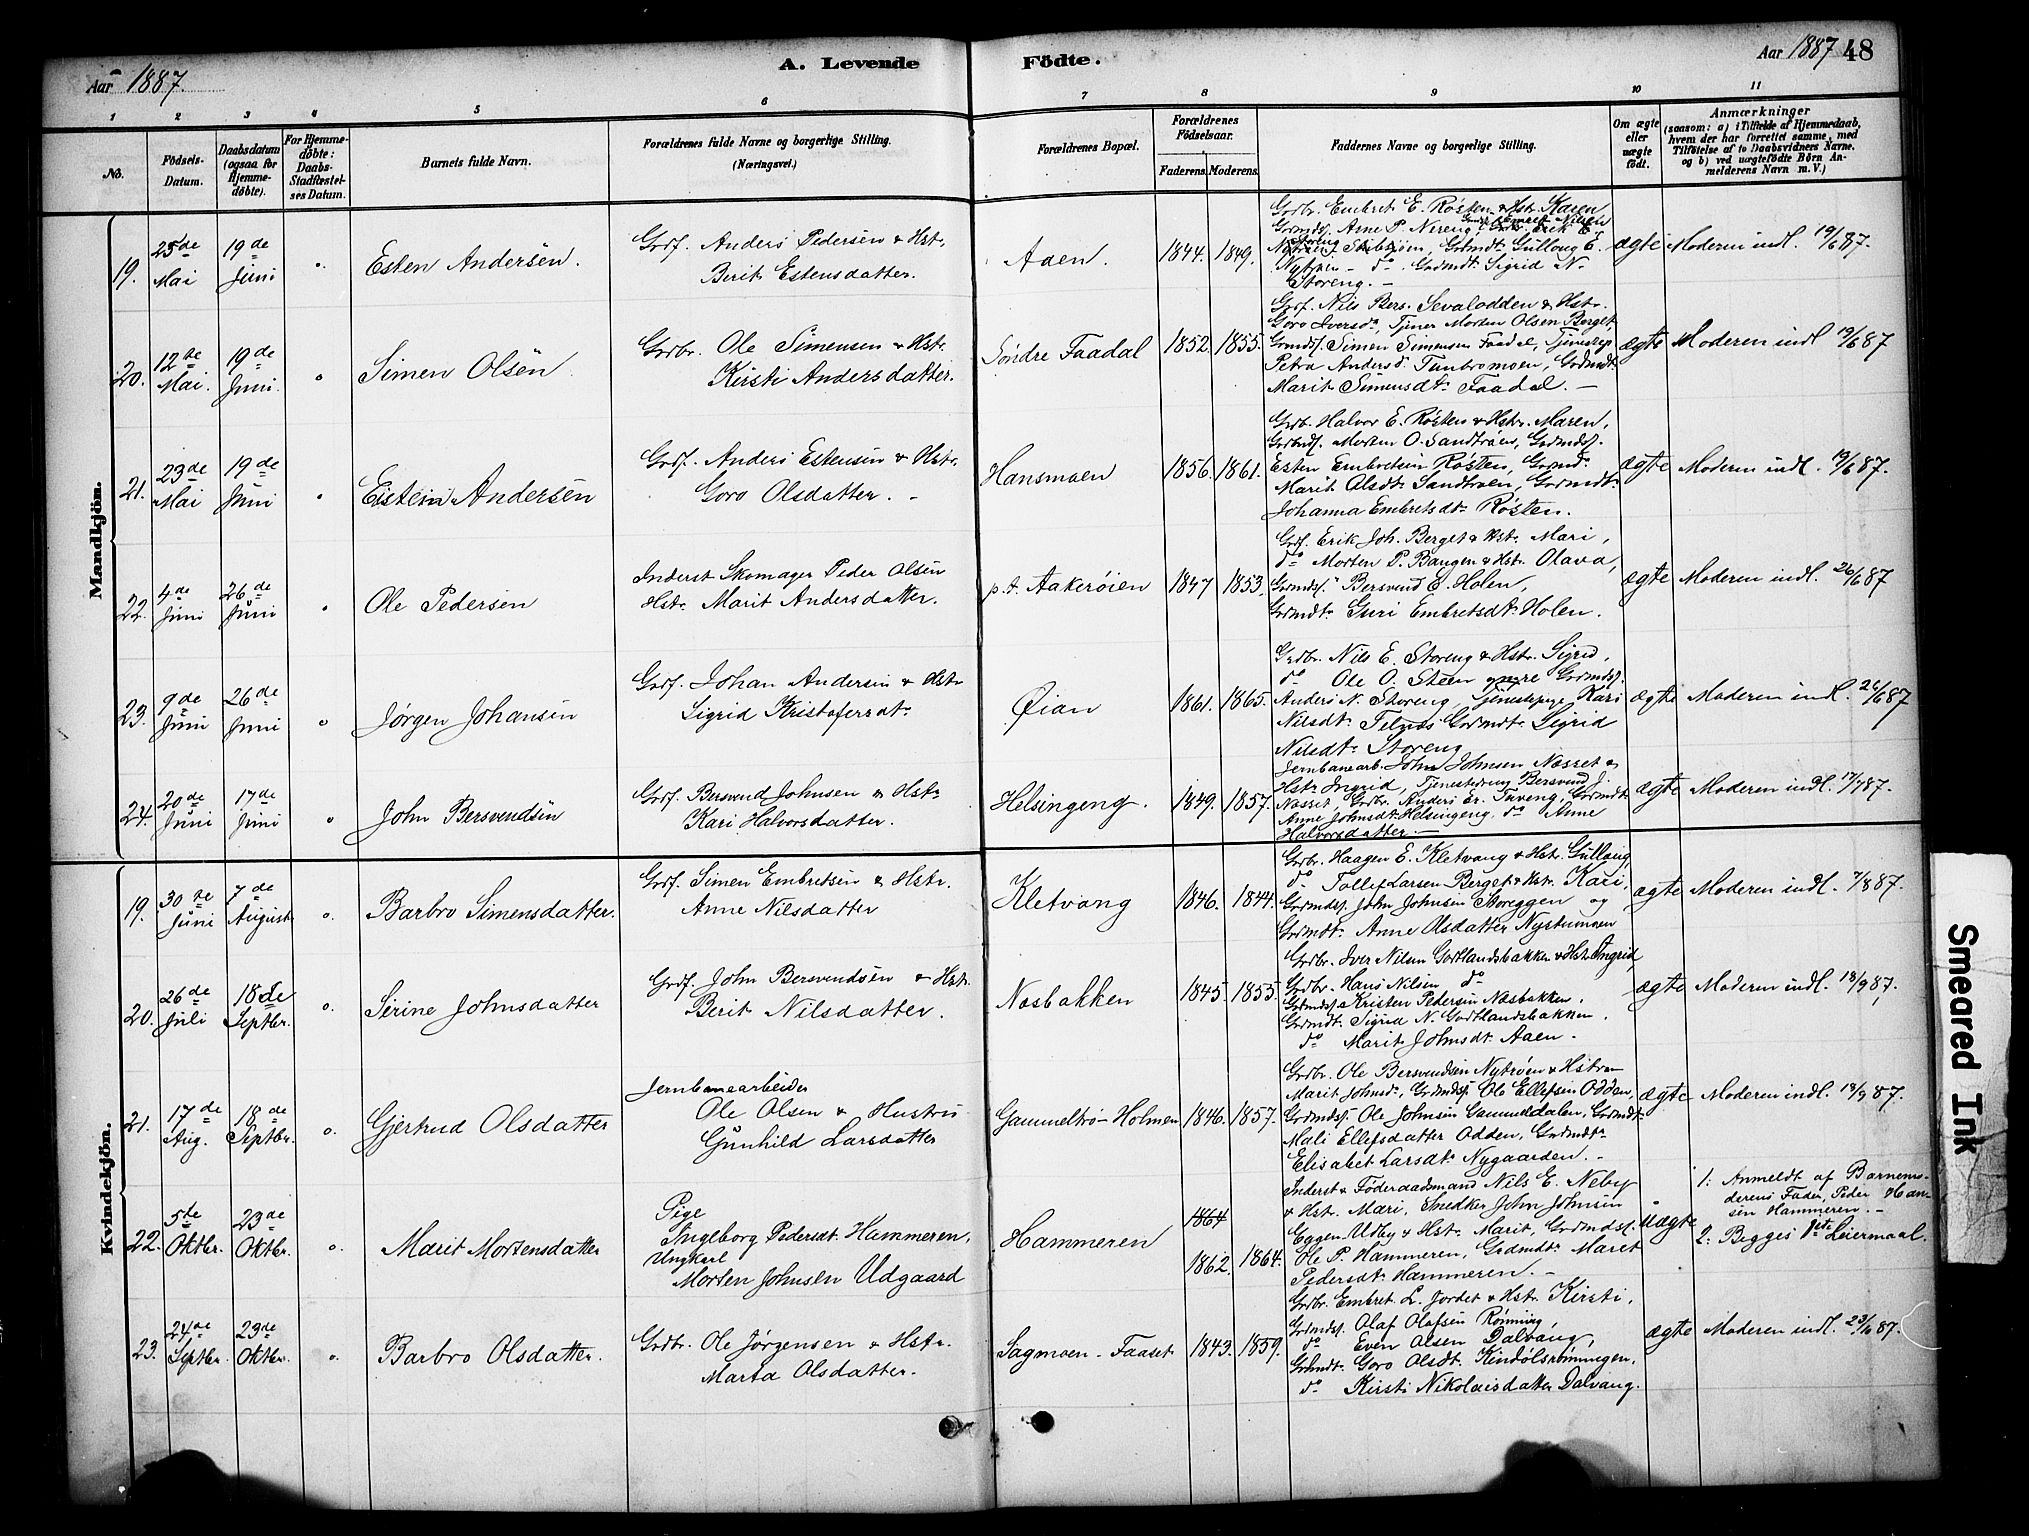 Aar 1887.
A. Levende
Födte.
Aar 1887
48
1
2
3
4
5
6
7
8
9
10
11
No.
Födsels-
Datum.
Daabsdatum
(ogsaa for
Hjemme-
döbte).
For Hjemme-
döbte:
Daabs-
Stadfæstel-
ses Datum.
Barnets fulde Navn.
Forældrenes fulde Navne og borgerlige Stilling.
(Næringsvei.)
Forældrenes Bopæl.
Forældrenes
Födselsaar.
Faderens.
Moderens.
Faddernes Navne og borgerlige Stilling.
Om ægte
eller
uægte
födt.
Anmærkninger
(saasom: a) i Tilfælde af Hjemmedaab,
hvem der har forrettet samme, med
Tilföielse af to Daabsvidners Navne.
og b) ved uægtefödte Börn An-
melderens Navn m. V.)
Mandkjön.
19.
25de
Mai
19de
Juni
Esten Andersen.
Grdf. Anders Pedersen & Hstr.
Berit Estensdatter.
Aaen.
1844.
1849.
Grdbr. Embret E. Røsten & Hstr. Karen
Grdmdsf. Arne P. Nereng,
Grdmdt. Gulloug E.
Grdmdt. Sigrid N.
Storeng. -
ægte
Moderen indl. 19/6 87.
20.
12te
Mai.
19de
Juni.
Simen Olsen
Grdbr. Ole Simensen & Hstr.
Kirsti Andersdatter.
Søndre Faadal
1852.
1855.
Grdf. Nils Bers. Sevalodden & Hstr.
Goro Iversd., Tjener Morten Olsen Berget
Grdmdsf. Simen Simensen Faadal, Tjenestep.
Petra Andersd. Tunbromoen, Grdmdt.
Marit Simensdt. Faadal. -
ægte
Moderen indl 19/6 87
21.
23de
Mai
19de
Juni
Eistein Andersen
Grdf. Anders Estensen & Hstr.
Goro Olsdatter. -
Hansmoen
1856.
1861.
Grdb. Halvor E. Røsten & Hstr. Maren,
Grdmdsf. Morten O. Sandtrøen, Grdmdsf.
Esten Embretsen Røsten, Grdmdt.
Marit Olsdt. Sandtrøen, Grdmdt.
Johanna Embretsdt. Røsten.
ægte
Moderen indl. 19/6 87.
22.
4de
Juni
26de
Juni
Ole Pedersen
Inderst Skomager Peder Olsen
Hstr. Marit Andersdatter.
p.t. Aakerøien
1847
1853.
Grdf. Erik Joh. Berget & Hstr. Mari,
do Morten P. Bangen & Hstr. Olava,
Grdmdsf. Bersvend E. Holen,
Grdmdt. Guri Embretsdt. Holen.
ægte
Moderen indl. 26/6 87
23.
9de
Juni
26de
Juni
Jørgen Johansen
Grdf. Johan Andersen & Hstr
Sigrid Kristofersdt.
Øian
1861.
1865.
Grdbr. Nils E. Storeng & Hstr. Sigrid,
do Ole O. Steen Grdmdsf.
Anders N. Storeng, Tjenestepige Kari
Nilsdt. Telnes Grdmdt. Sigrid
Nilsdt. Storeng
ægte
Moderen indl. 26/6 87
24.
20de
Juni
17de
Juni
John Bersvendsen
Grdf. Bersvend Johnsen & Hstr.
Kari Halvorsdatter.
Helsingeng.
1849.
1857.
Jernbanearb. John Johnsen Næsset &
Hstr. Ingrid, Tjenestedreng Bersvend J.
Næsset, Grdbr. Anders Er. Tuveng, Grdmdt.
Anne Johnsdt. Helsingeng, do Anne
Halvorsdatter. -
ægte
Moderen indl. 17/7 87.
Kvindekjön.
19.
30te
Juni
7de
August
Barbro Simensdatter.
Grdf. Simen Embretsen & Hstr.
Anne Nilsdatter
Kletvang
1846.
1844.
Grdbr. Haagen E. Kletvang & Hstr. Gulloug
do Tollef Larsen Berget & Hstr. Kari,
Grdmdsf. John Johnsen Storeggen og
Grdmdt. Anne Olsdatter Nystumoen
ægte
Moderen indl. 7/8 87.
20.
26de
Juli
18de
Septbr.
Serine Johnsdatter
Grdf. John Bersvendsen & Hstr.
Berit Nilsdatter.
Næsbakken
1845.
1855.
Grdbr. Iver Nilsen Godtlandsbakken & Hstr. Ingrid,
Grdbr. Hans Nilsen do
Grdmdsf. Kristen Pedersen Næsbakken,
Grdmdt. Sigrid N. Godtlandsbakken,
do Marit Johnsdt. Aaen.
ægte
Moderen indl. 18/9 87.
21.
17de
Aug.
18de
Septbr.
Gjertrud Olsdatter
Jernbanearbeider
Ole Olsen & Hustru
Gunhild Larsdatter
Gammeltrø-Holmen
1846.
1857.
Grdbr. Ole Bersvendsen Nytrøen & Hstru
Marit Johnsd., Grdmdsf. Ole Ellefsen Odden,
Grdmdsf. Ole Johnsen Gammeldalen, Grdmdt.
Mali Ellefsdatter Odden, Grdmdt.
Elisabet Larsdt. Nygaarden. -
ægte
Moderen indl. 18/9 87.
22.
5te
Oktbr.
23de
Oktbr.
Marit Mortensdatter
Pige
Ingeborg Pedersdt. Hammeren,
Ungkarl
Morten Johnsen Udgaard
Hammeren
1864
1862.
1864.
Inderst & Föderaadsmand Nils E. Neby
& Hstr. Mari, Snedker John Johnsen
Eggen Udby & Hstr. Marit, Grdmdsf.
Ole P. Hammeren, Grdmdt. Maret
Pedersdt. Hammeren. -
uægte
1. Anmeldt af Barnemo-
derens Fader, Peder Han-
sen Hammeren. -
2. Begges 1ste Leiermaal.
23.
24de
Septbr.
23de
Oktbr.
Barbro Olsdatter.
Grdbr. Ole Jørgensen & Hstr.
Marta Olsdatter.
Sagmoen - Faaset
1843.
1859.
Grdbr. Embret L. Jordet & Hstr. Kirsti,
Grdmdsf. Olaf Olafsen Rønning,
do Even Olsen Dalvang,
Grdmdt. Goro Olsdt. Kindølsrønningen,
do Kirsti Nikolaisdatter Dalvang.
ægte
Moderen indl. 23/10 87.
Smeared Ink